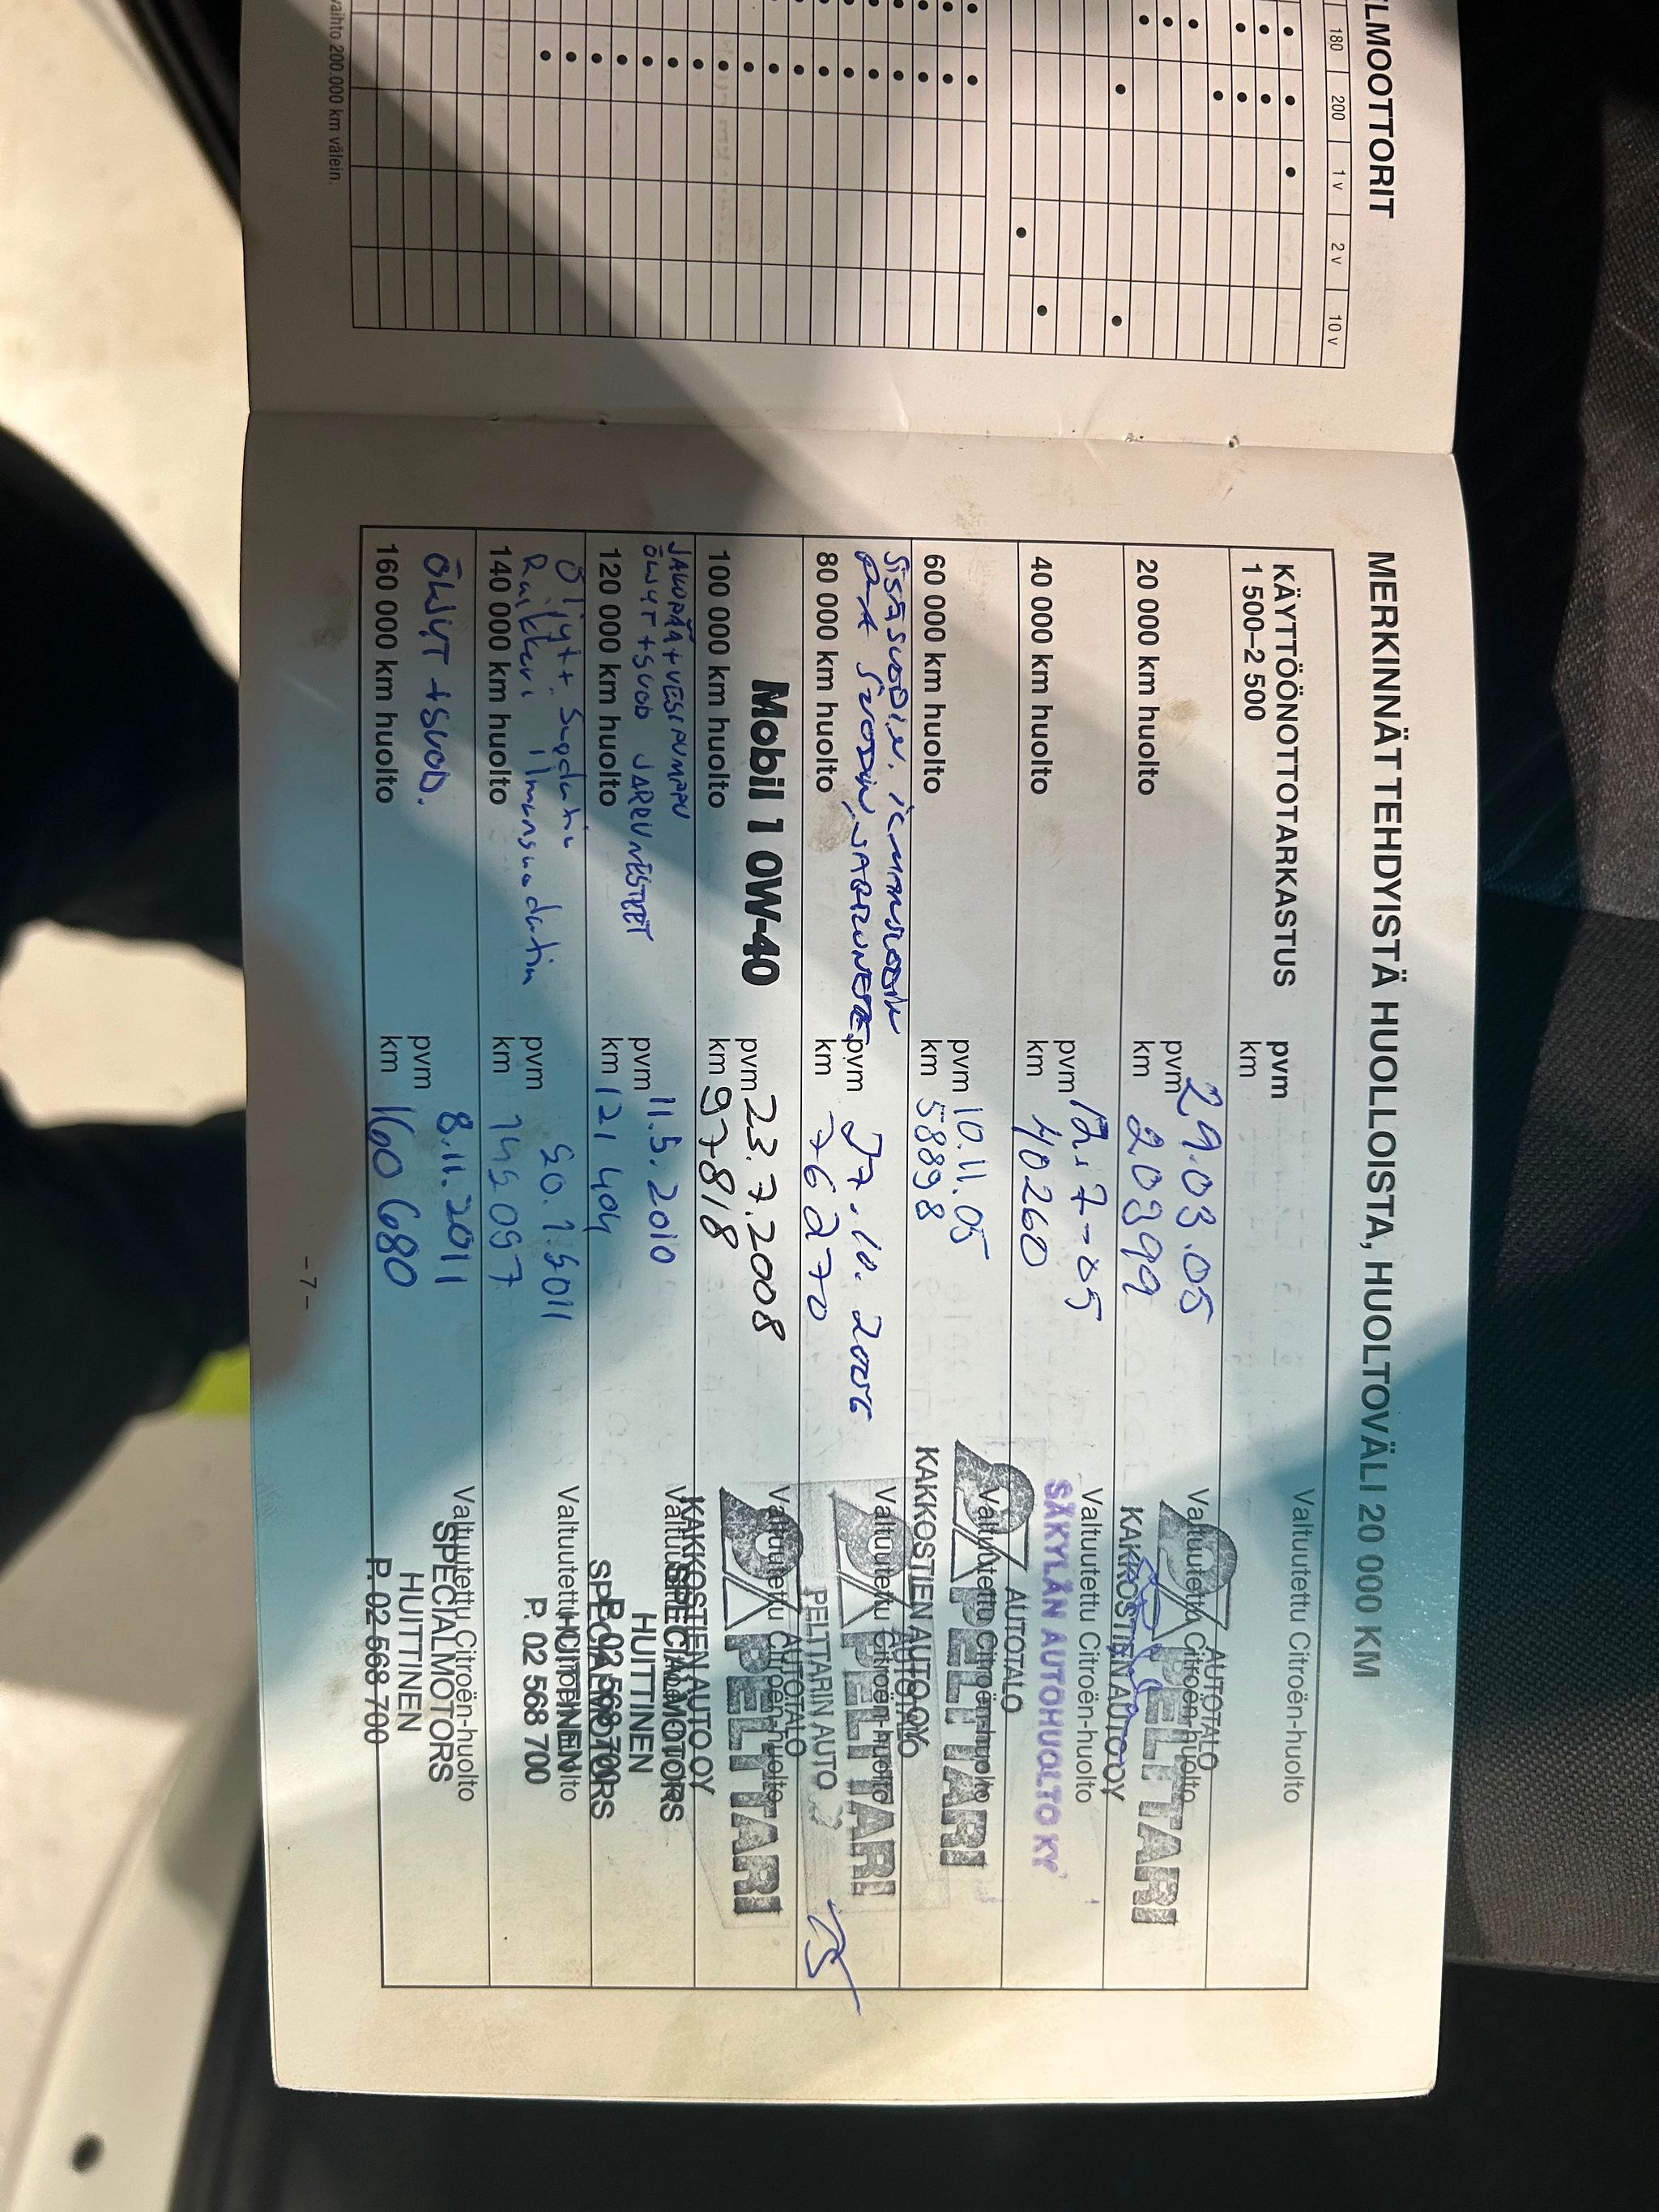 LMOOTTORIT
180 200 1 v 2 v 10 v
aihto 200.000 km välein.
MERKINNÄT TEHDYISTÄ HUOLLOISTA, HUOLTOVÄLI 20 000 KM
KÄYTTÖÖNOTTOTARKASTUS pvm Valtuutettu Citroën-huolto
1 500–2 500 km
29.03.05
pvm Valtuutettu Citroën-huolto
AUTOTALO
PELTTARI
20 000 km huolto km 20399
KAKKOSTIEN AUTO OY
pvm 12.7-05 Valtuutettu Citroën-huolto
40 000 km huolto km 40260
SÄKYLÄN AUTOHUOLTO KY
AUTOTALO
pvm 10.11.05 Valtuutettu Citroën-huolto
PELTTARI
60 000 km huolto km 58898
KAKKOSTIEN AUTO OY
SISÄSUODIN, ILMANSUODIN
SUODIN, JARRUNESTE, pvm 27.10.2006 Valtuutettu Citroën-huolto
PELTTARI
80 000 km huolto km 76270
PELTTARIN AUTO
AUTOTALO
Mobil 1 0W-40 pvm 23.7.2008 Valtuutettu Citroën-huolto
PELTTARI
100 000 km huolto km 97818
KAKKOSTIEN AUTO OY
JAKOPÄÄ + VESIPUMPPU
ÖLJYT + SUOD JARRUNESTEET pvm 11.5.2010
SPECIALMOTORS
HUITTINEN
P. 02 568 700
120 000 km huolto km 121 404
SPECIALMOTORS
Öljyt + Suodatin
Raikkari ilmansuodatin pvm 20.1.2011 Valtuutettu Citroën-huolto
HUITTINEN
P. 02 568 700
140 000 km huolto km 145 097
ÖLJYT + SUOD. pvm 8.11.2011 Valtuutettu Citroën-huolto
SPECIALMOTORS
HUITTINEN
160 000 km huolto km 160 680
P. 02 568 700
– 7 –